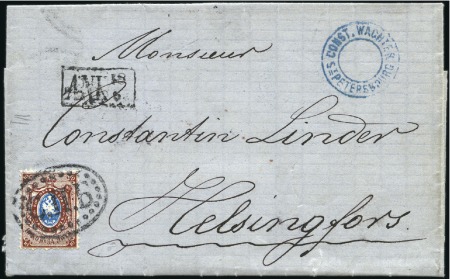 Monsieur
CONST. WACHTER
ST PETERSBURG
ANK
Constantin Linder
Helsingfors.